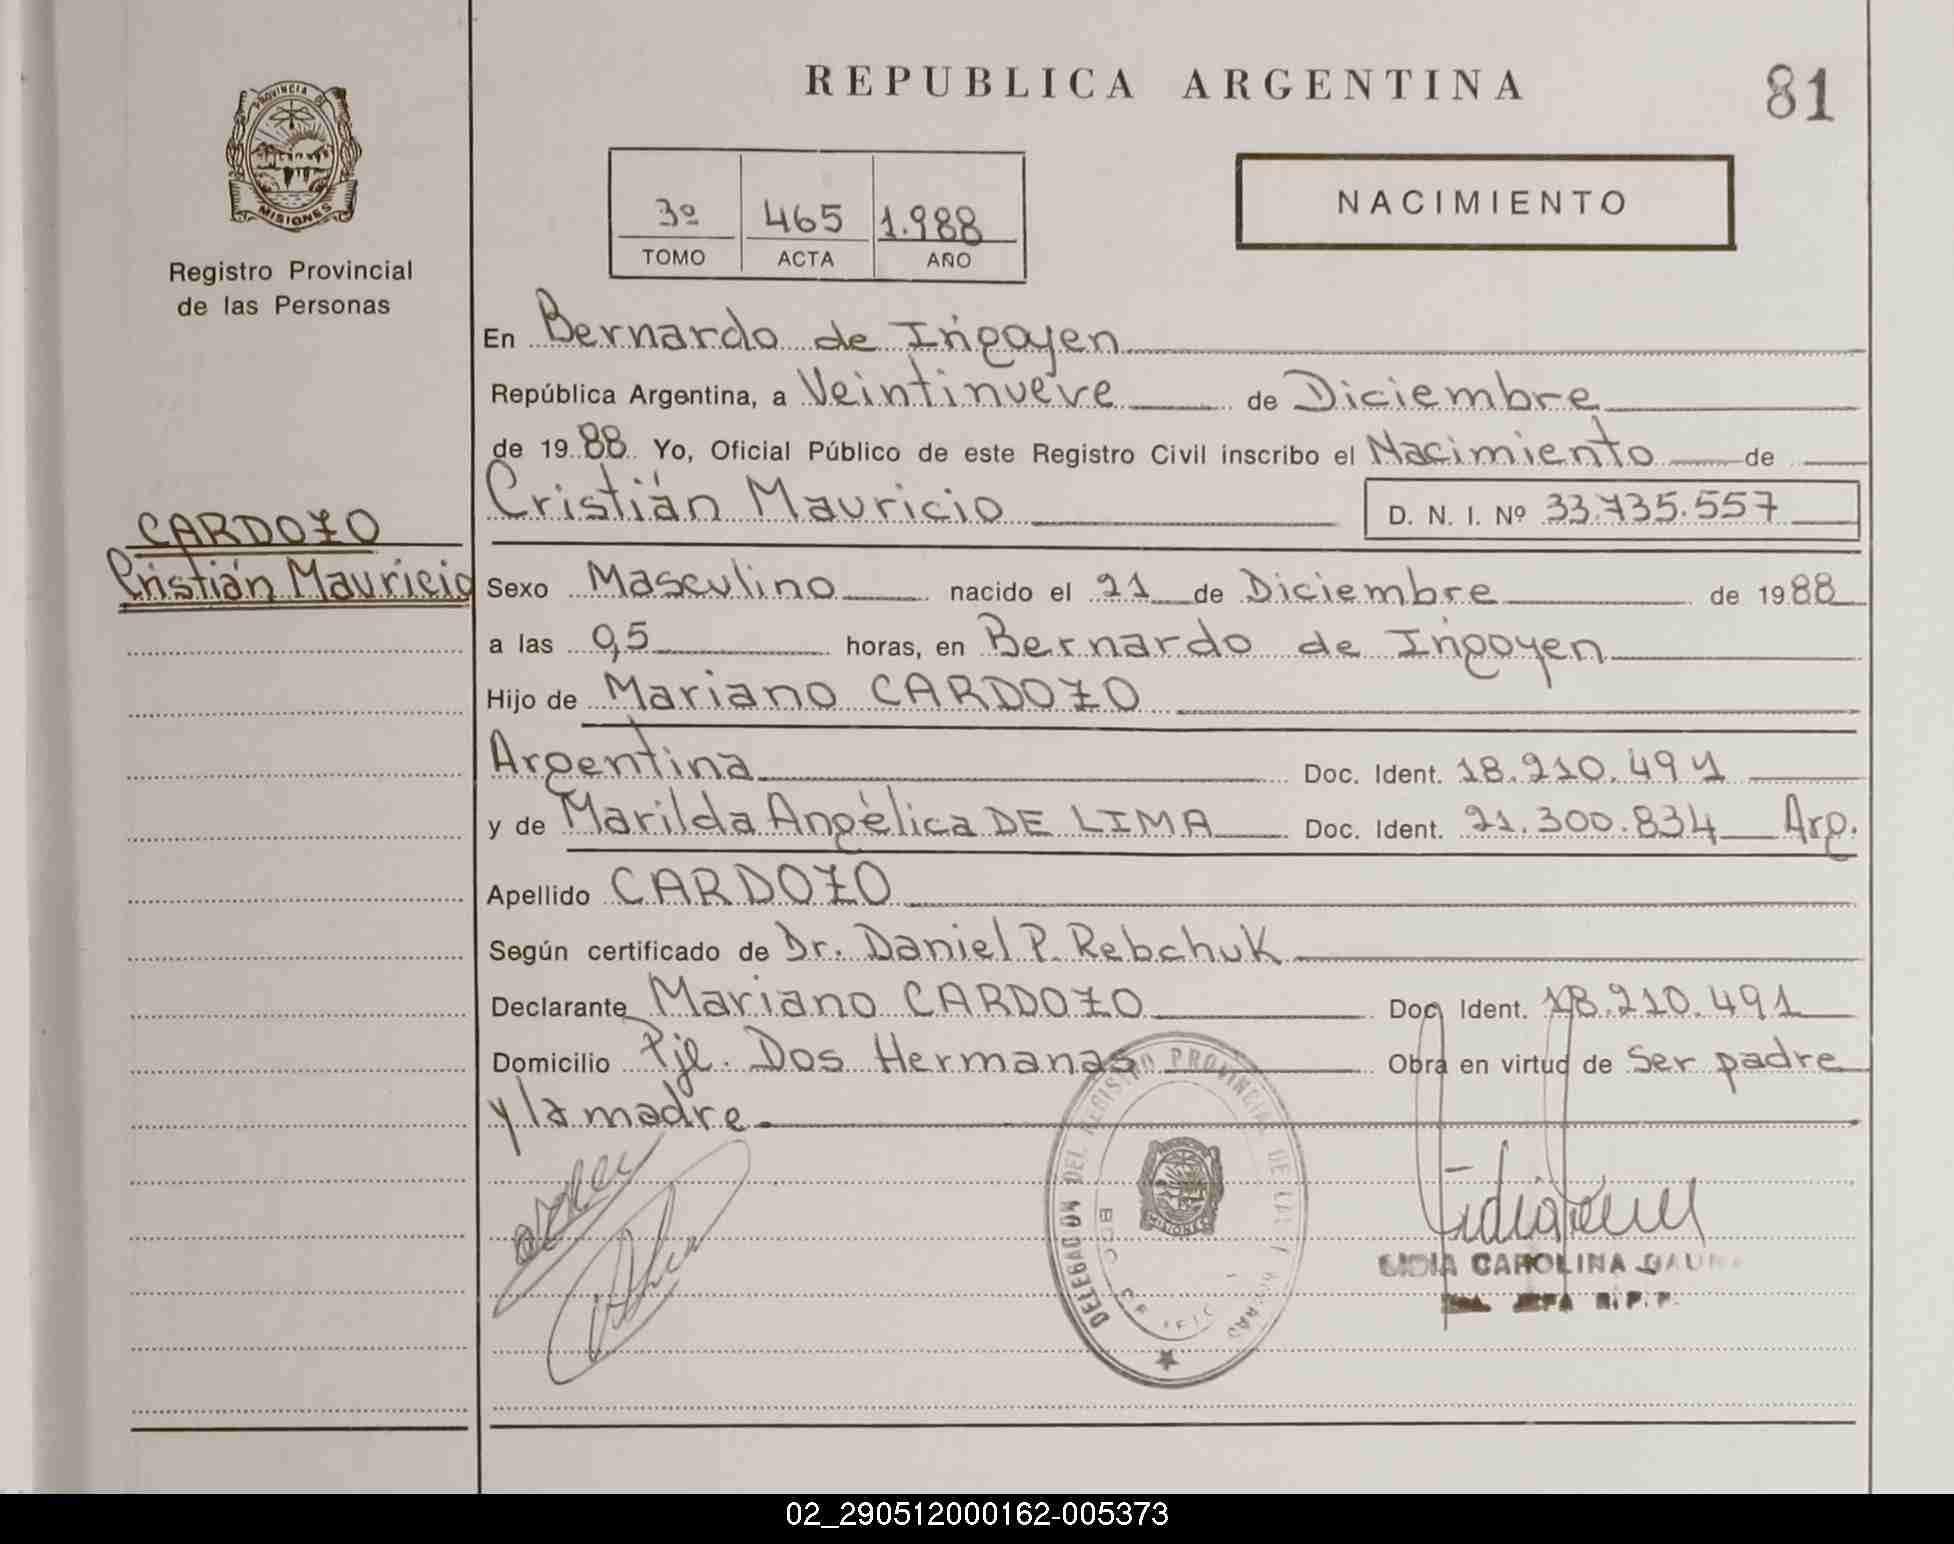 REPUBLICA ARGENTINA
81
PROVINCIA DE
MISIONES
Registro Provincial
de las Personas
NACIMIENTO
3º 465 1.988
TOMO ACTA AÑO
En Bernardo de Irigoyen
República Argentina, a Veintinueve de Diciembre
de 1988 Yo, Oficial Público de este Registro Civil inscribo el Nacimiento de
Cristián Mauricio D. N. I. Nº 33.735.557
CARDOZO
Cristián Mauricio
Sexo Masculino nacido el 21 de Diciembre de 1988
a las 0,5 horas, en Bernardo de Irigoyen
Hijo de Mariano CARDOZO
Argentina Doc. Ident. 18.210.491
y de Marilda Angélica DE LIMA Doc. Ident. 21.300.834 Arg.
Apellido CARDOZO
Según certificado de Dr. Daniel P. Rebchuk
Declarante Mariano CARDOZO Doc. Ident. 18.210.491
Domicilio Pje. Dos Hermanas Obra en virtud de Ser padre
y la madre
DELEGACION DEL REGISTRO PROVINCIAL DE LAS
MISIONES
LIDIA CAROLINA
JEFA R.P.P.
02_290512000162-005373